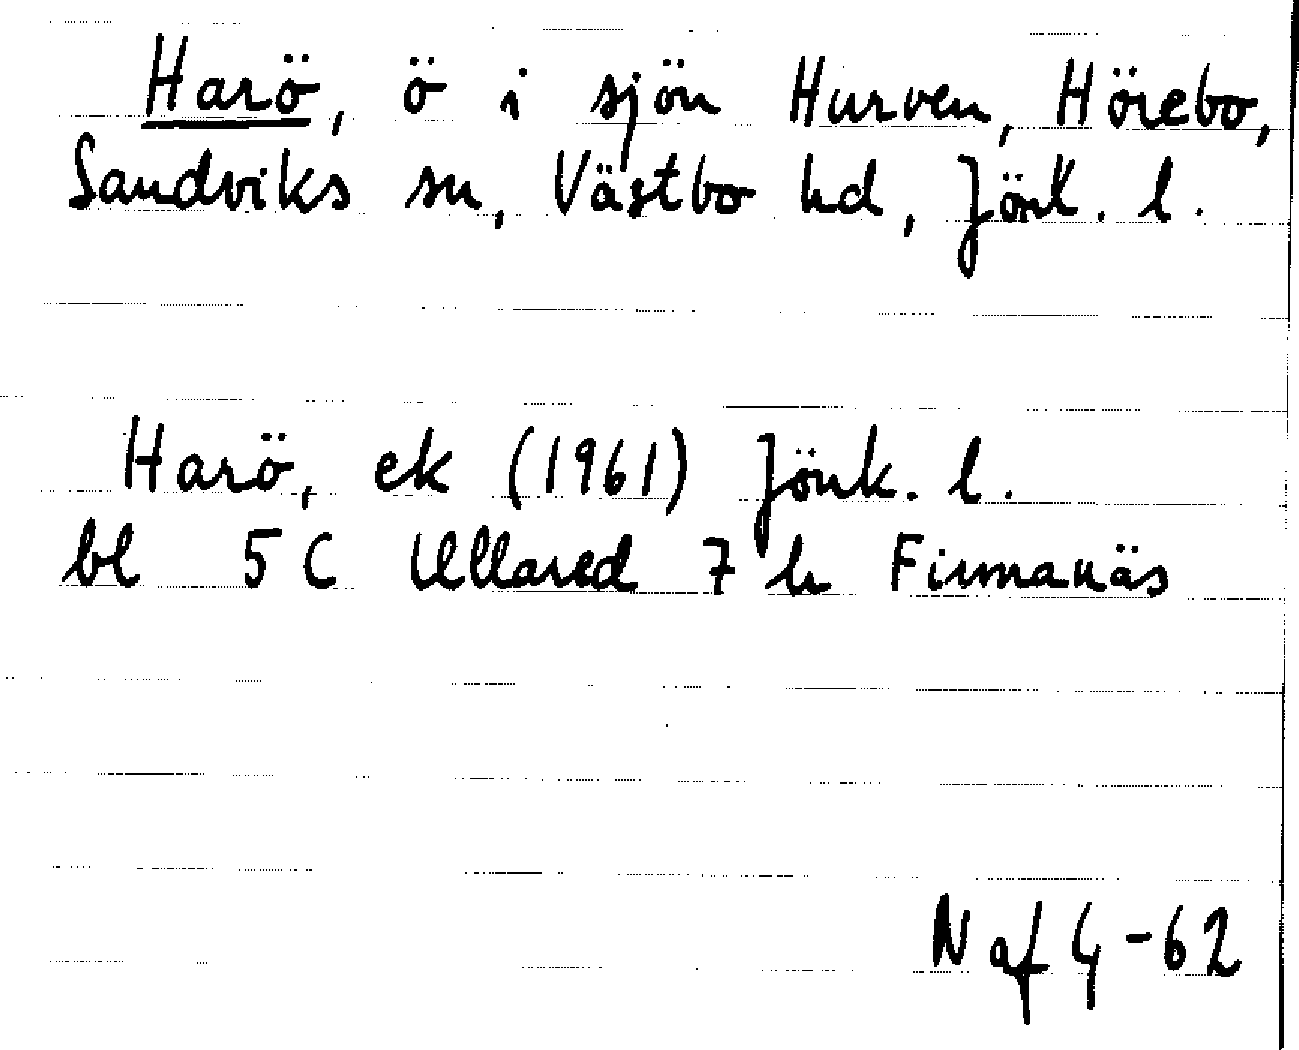 Harö, ö i sjön Hurven, Hörebo,
Sandviks sn, Västbo hd, Jönk. l.
Harö, ek (1961) Jönk. l.
bl 5 C Ullared 7 h Firmanäs
N af G -62